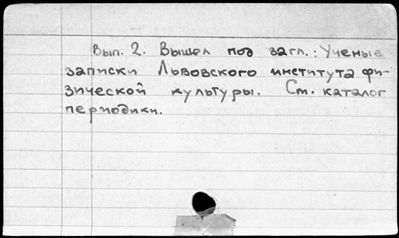 Вып. 2. Вышел под загл.: Ученые
записки Львовского института фи-
зической культуры. См. каталог
периодики.